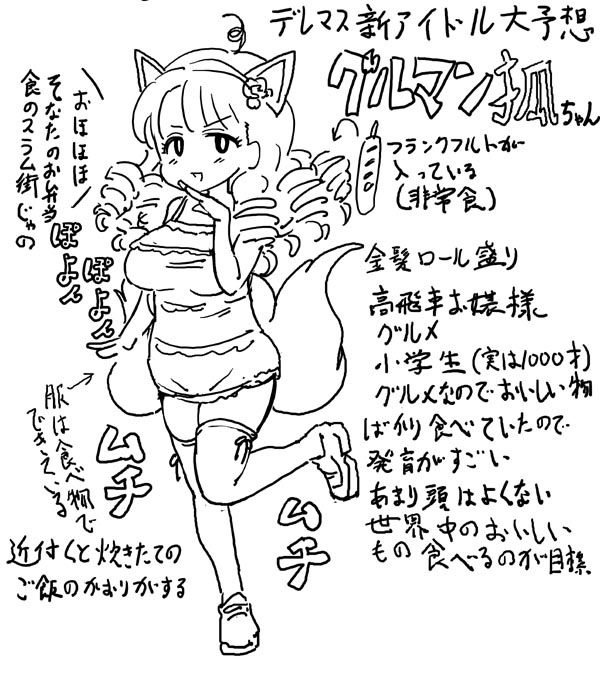 デレマス新アイドル大予想
グルマン狐ちゃん
フランクフルトが
入っている
(非常食)
金髪ロール盛り
高飛車お嬢様
グルメ
小学生(実は1000才)
グルメなのでおいしい物
ばかり食べていたので
発育がすごい
あまり頭はよくない
世界中のおいしい
もの食べるのが目標
おほほほ
そなたのお弁当
食のスラム街じゃの
ぽよん
ぽよん
服は食べ物で
できている
ムチ
ムチ
近付くと炊きたての
ご飯のかおりがする